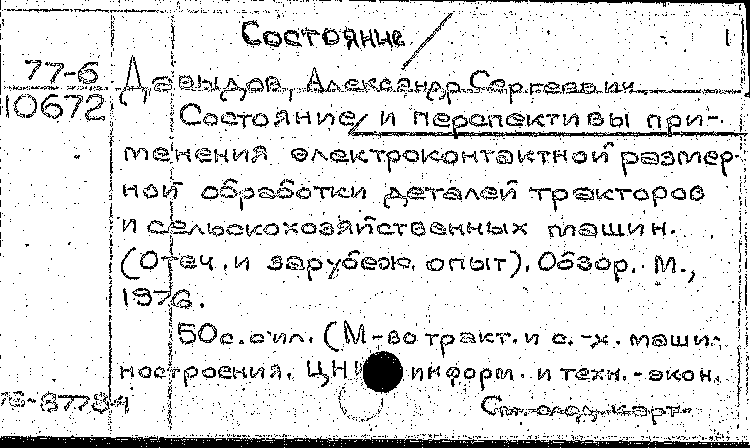 Состояние
1
77-6
10672
Давыдов, Александр Сергеевич
Состояние и перспективы при-
менения электроконтактной размер-
ной обработки деталей тракторов
и сельскохозяйственных машин.
(Отеч. и зарубеж. опыт). Обзор. М.,
1976.
50 с. с ил. (М-во тракт. и с.-х. маши-
ностроения. ЦНИ информ. и техн.-экон.
76-87784
См. след. карт.